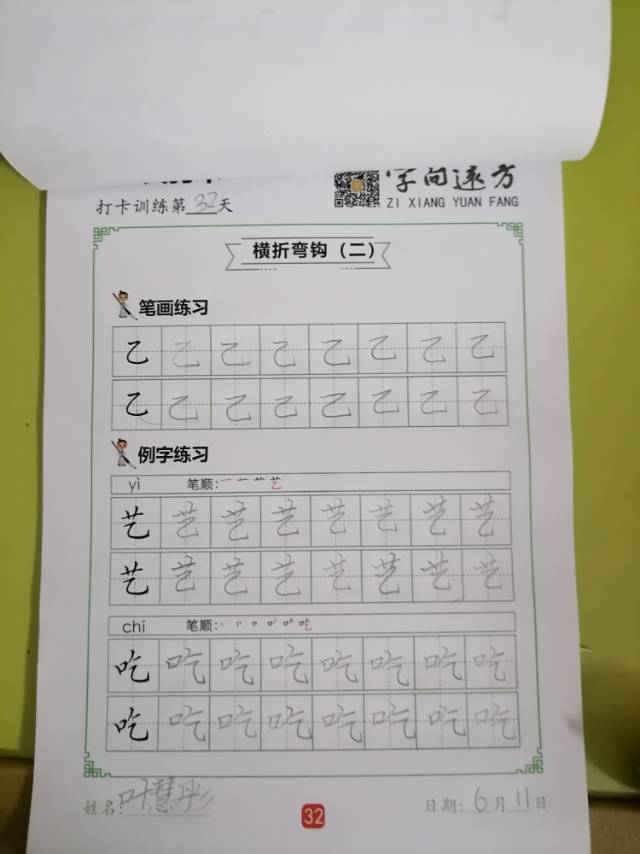 字向远方
ZI XIANG YUAN FANG
打卡训练第32天
横折弯钩（二）
笔画练习
乙 乙 乙 乙 乙 乙 乙 乙
乙 乙 乙 乙 乙 乙 乙 乙
例字练习
yì 笔顺:一 十 艹 艺
艺 艺 艺 艺 艺 艺 艺 艺
艺 艺 艺 艺 艺 艺 艺 艺
chī 笔顺:
吃 吃 吃 吃 吃 吃 吃 吃
吃 吃 吃 吃 吃 吃 吃 吃
姓名:叶慧彤
32
日期:6月11日